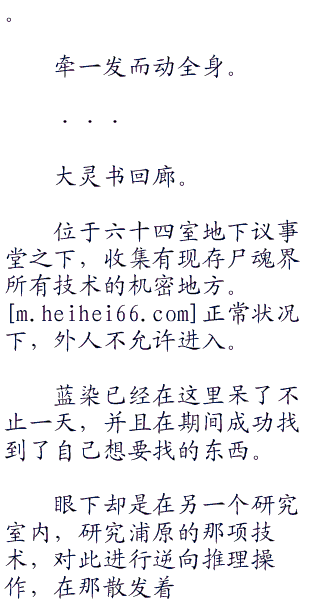 。
牵一发而动全身。
．．．
大灵书回廊。
位于六十四室地下议事
堂之下，收集有现存尸魂界
所有技术的机密地方。
[m.heihei66.com]正常状况
下，外人不允许进入。
蓝染已经在这里呆了不
止一天，并且在期间成功找
到了自己想要找的东西。
眼下却是在另一个研究
室内，研究浦原的那项技
术，对此进行逆向推理操
作，在那散发着